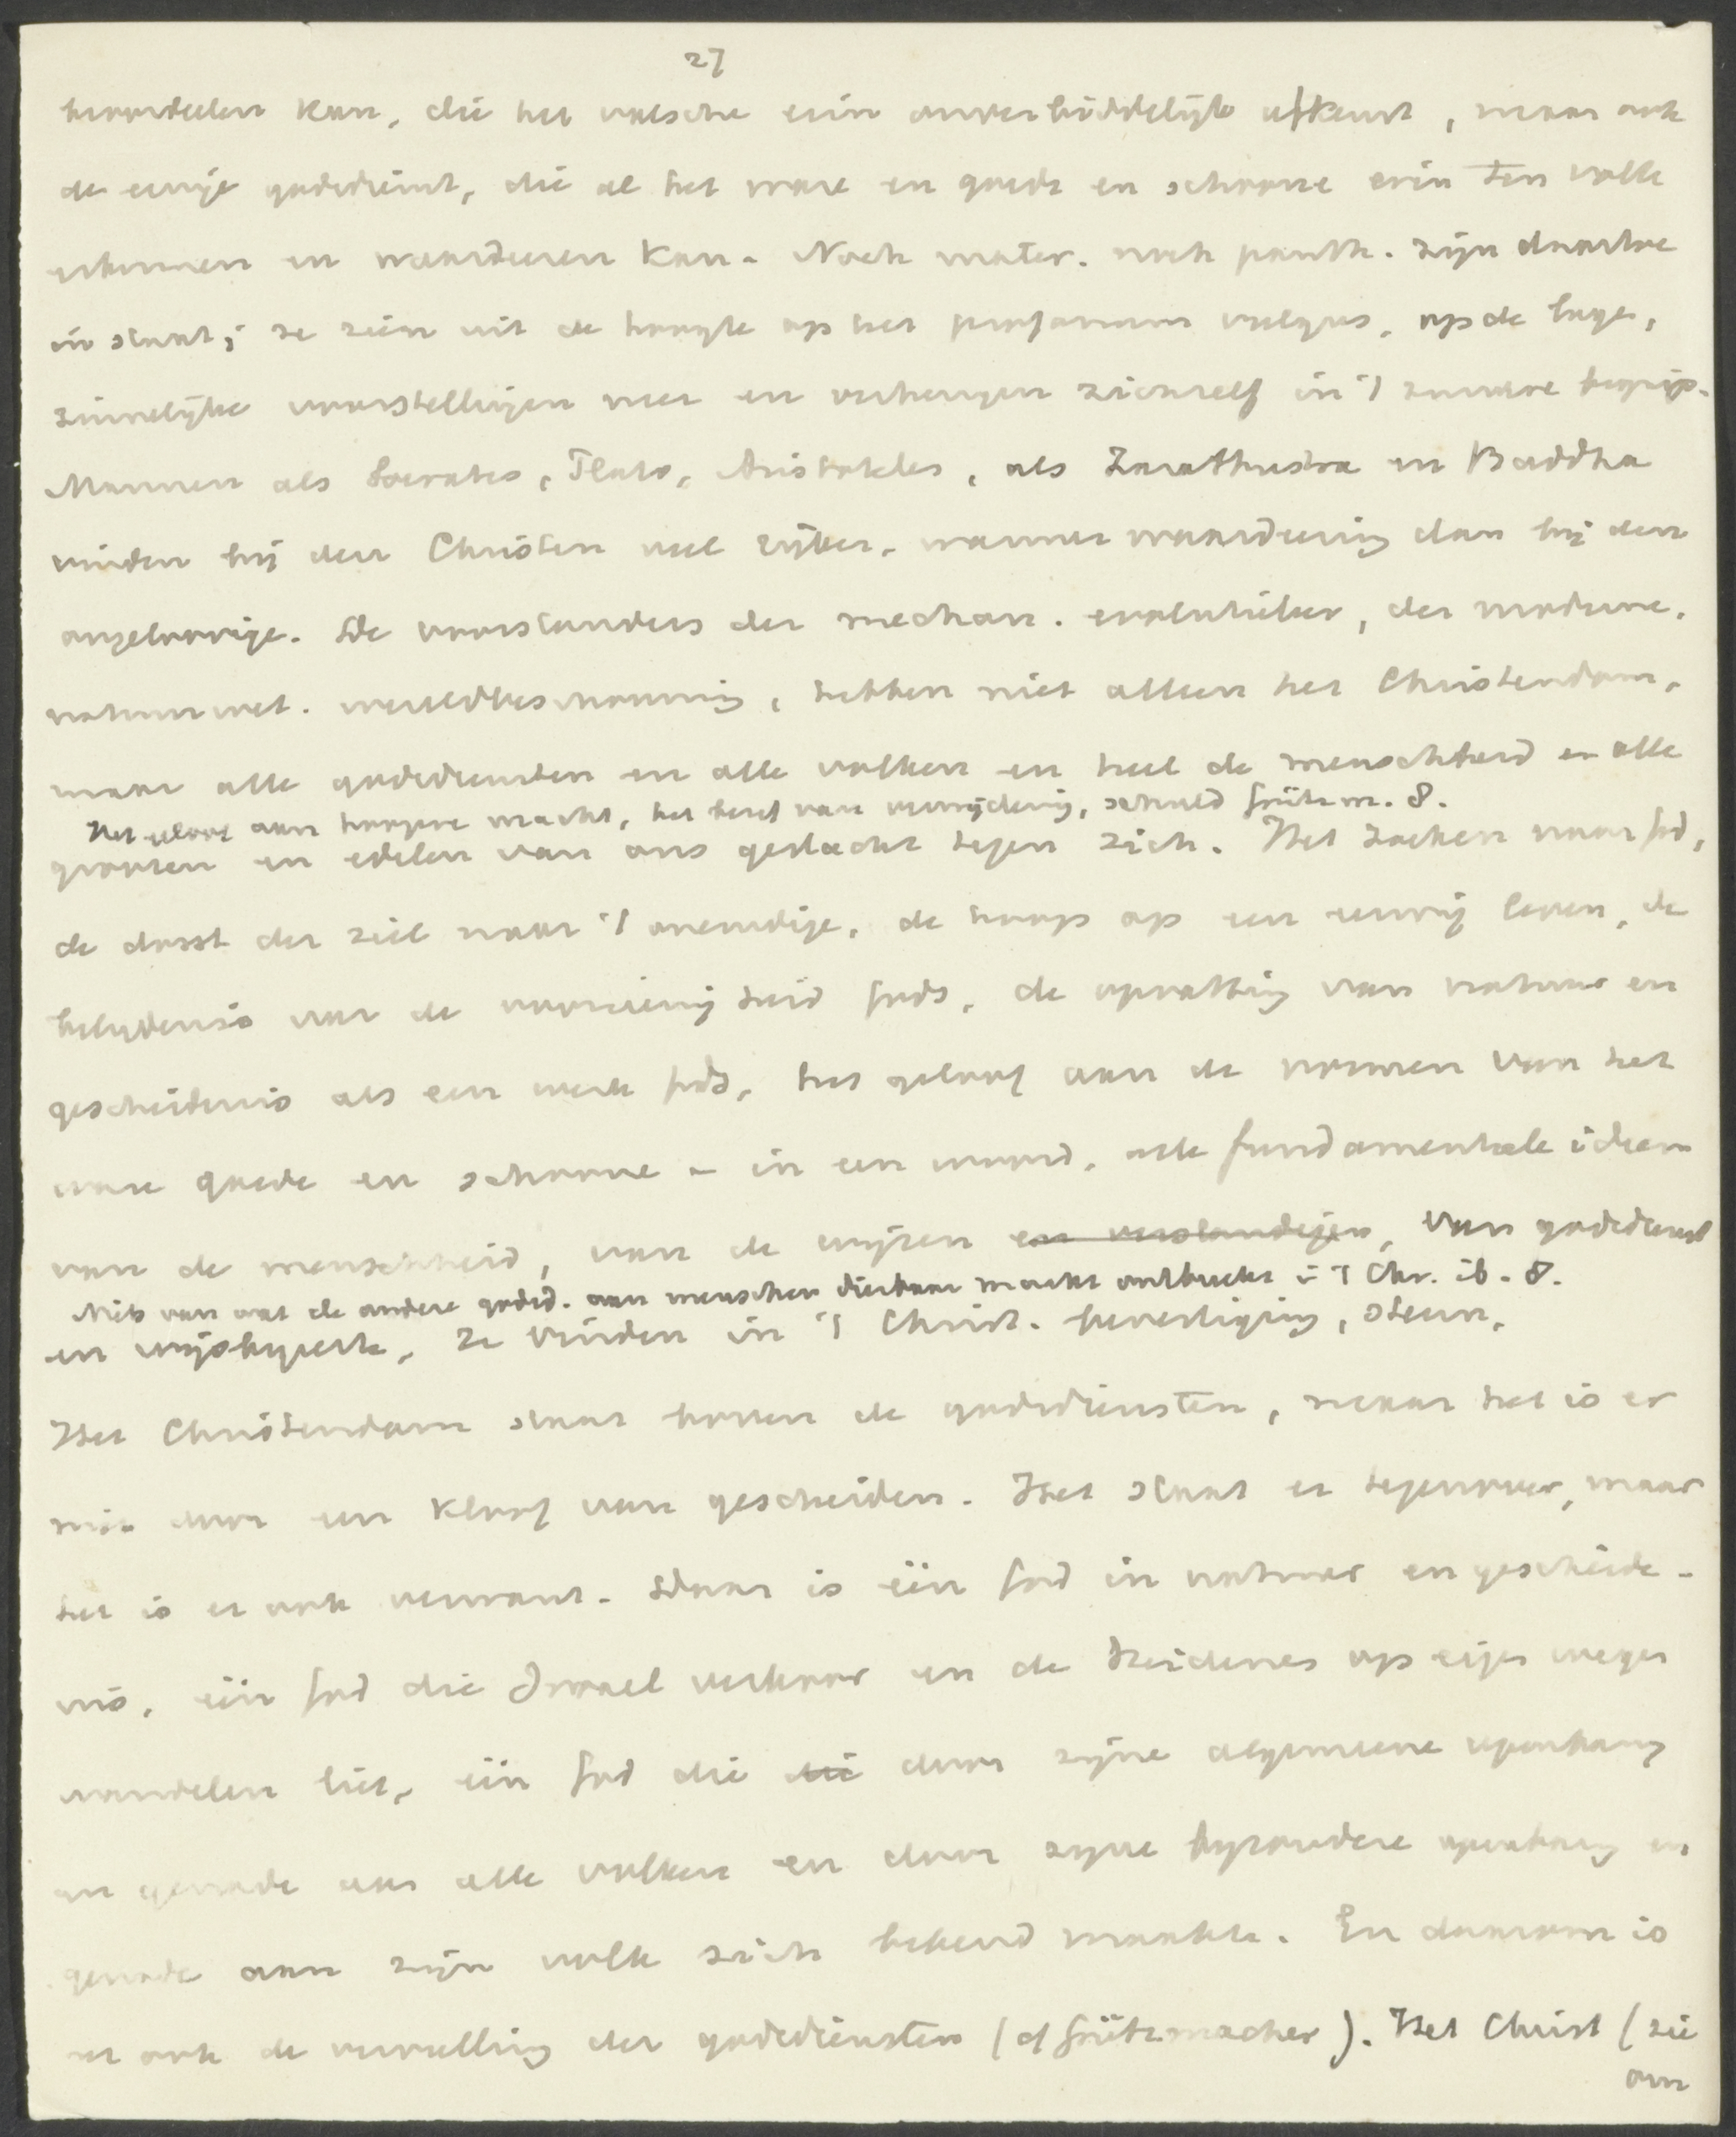 27
beoordeelen kan, die het valsche erin onverbiddelijk afkeurt, maar ook
de eenige godsdienst, die al het ware en goede en schoone erin ten volle
erkennen en waardeeren kan. Noch mater. noch panth. zijn daartoe
in staat; ze zien uit de hoogte op het profanum vulgus, op de lage,
zinnelijke voorstellingen neer en verheugen zichzelf in 't zuivere begrip.
Mannen als Socrates, Plato, Aristoteles, als Zarathustra en Buddha
vinden bij den Christen veel rijker, warmer waardeering dan bij den
ongeloovige. De voorstanders der mechan. evolutieleer, der moderne,
natuurwet. wereldbeschouwing, hebben niet alleen het Christendom,
maar alle godsdiensten en alle volken en heel de menschheid en alle
Het geloof aan hoogere macht, het besef van verwijdering, schuld Grützm. 8.
grooten en edelen van ons geslacht tegen zich. Het zoeken naar God,
de dorst der ziel naar 't oneindige, de hoop op een eeuwig leven, de
belydenis van de voorzienigheid Gods, de opvatting van natuur en
geschiedenis als een werk Gods, het geloof aan de normen van het
ware goede en schoone - in een woord, alle fundamenteele ideen
van de menschheid, van de wijzen en verstandigen, van godsdienst
Niets van wat de andere godsd. aan menschen dierbaar maakt ontbreekt in 't Chr. ib. 8.
en wijsbegeerte, ze vinden in 't Christ. bevestiging, steun.
Het Christendom staat boven de godsdiensten, maar het is er
niet door een kloof van gescheiden. Het staat er tegenover, maar
het is er ook verwant. Daar is één God in natuur en geschiede-
nis, één God die Israel verkoor en de Heidenen op eigen wegen
wandelen liet, één God die die door zijne algemeene openbaring
en genade aan alle volken en door zijne byzondere openbaring en
genade aan zijn volk zich bekend maakte. En daarom is
het ook de vervulling der godsdiensten (cf Grützmacher). Het Christ (zie
om